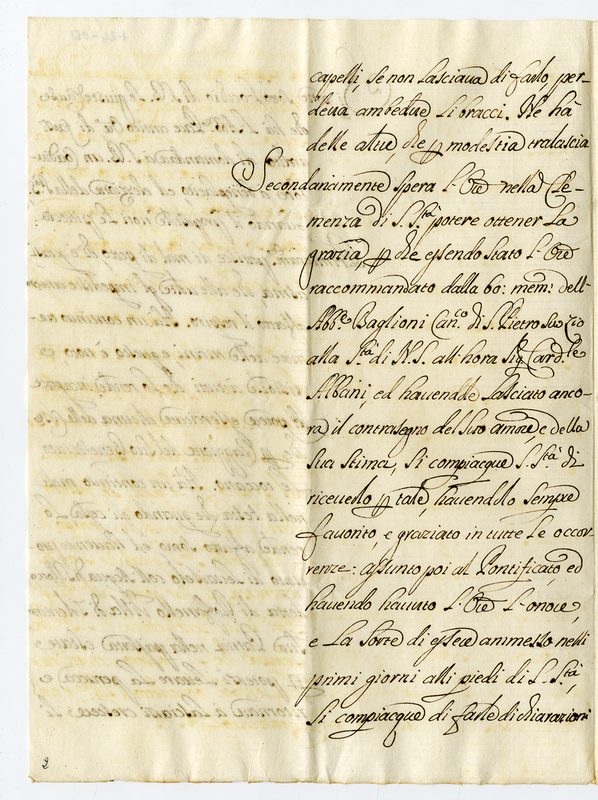 capelli, se non lasciava di farlo, per-
deva ambedue li bracci. Ne hà
delle altre, che p modestia tralascia
Secondariamente spera l'Ore nella Cle-
menza di S. Stà potere ottener la
grazia, p che essendo stato l'Ore
raccommandato dalla bo: mem: dell'
Abbe Baglioni Canco di S. Pietro suo Zio
alla Stà di N.S. all'hora Sig Cardle
Albani, ed havendole lasciato anco-
ra il contrasegno del suo amore, e della
sua stima, si compiacque S. Stà di
riceverlo p tale, havendolo sempre
favorito, e graziato in tutte le occor-
renze: assunto poi al Pontificato ed
havendo havuto l'Ore l'onore,
e la sorte di essere ammesso nelli
primi giorni alli piedi di S. Stà,
si compiacque di farle dichiarazioni
2